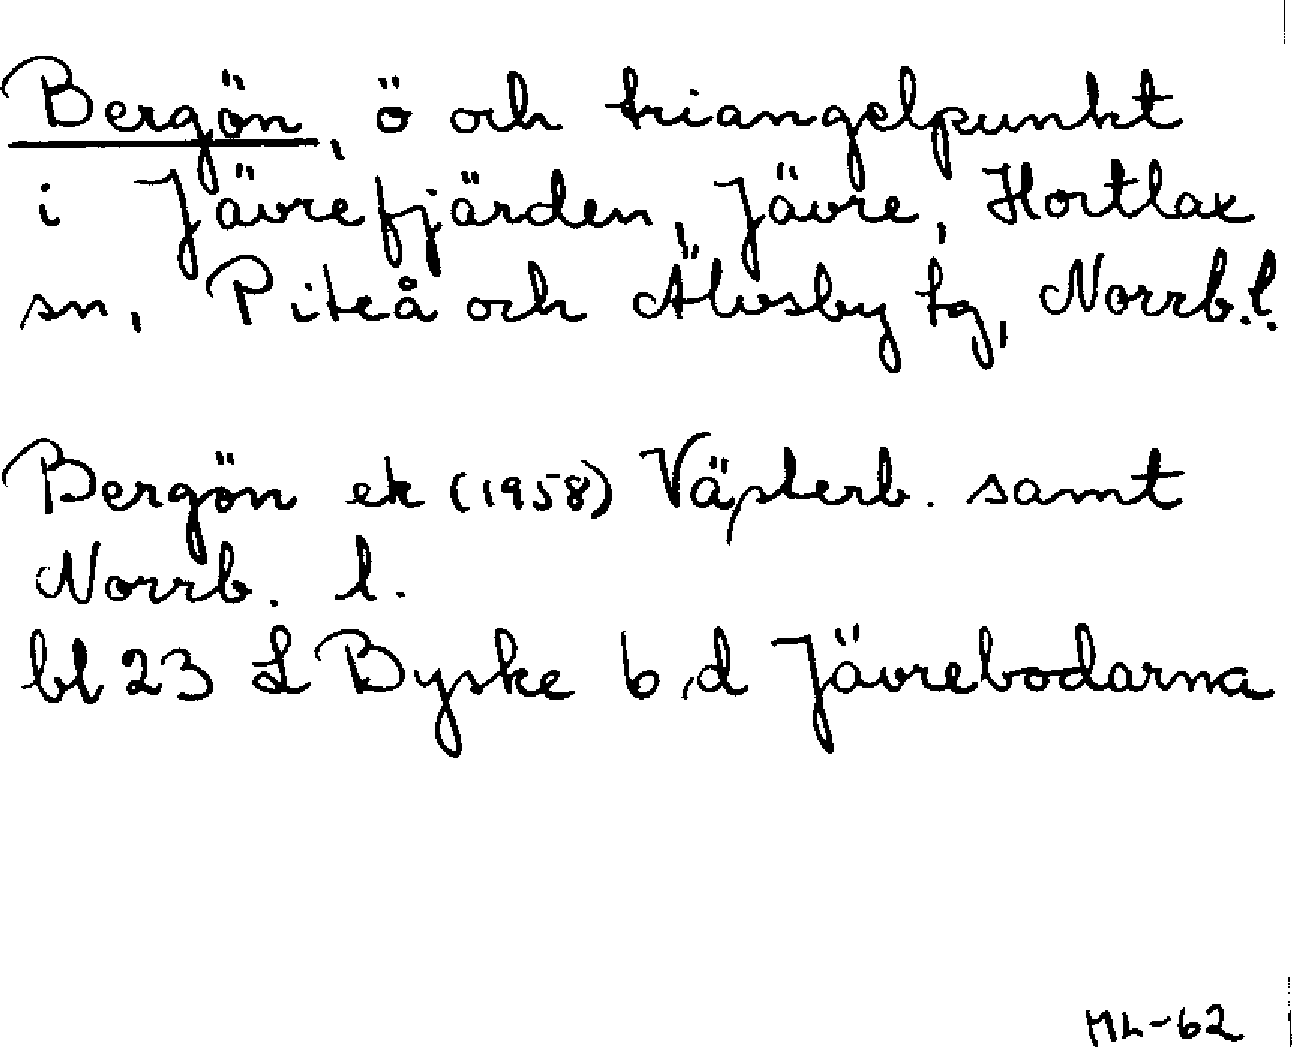 Bergön, ö och triangelpunkt
i Jävrefjärden, Jävre, Hortlax
sn, Piteå och Älvsby tg, Norrb.l.
Bergön ek (1958) Västerb. samt
Norrb. l.
bl 23 L Byske b,d Jävrebodarna
ML-62